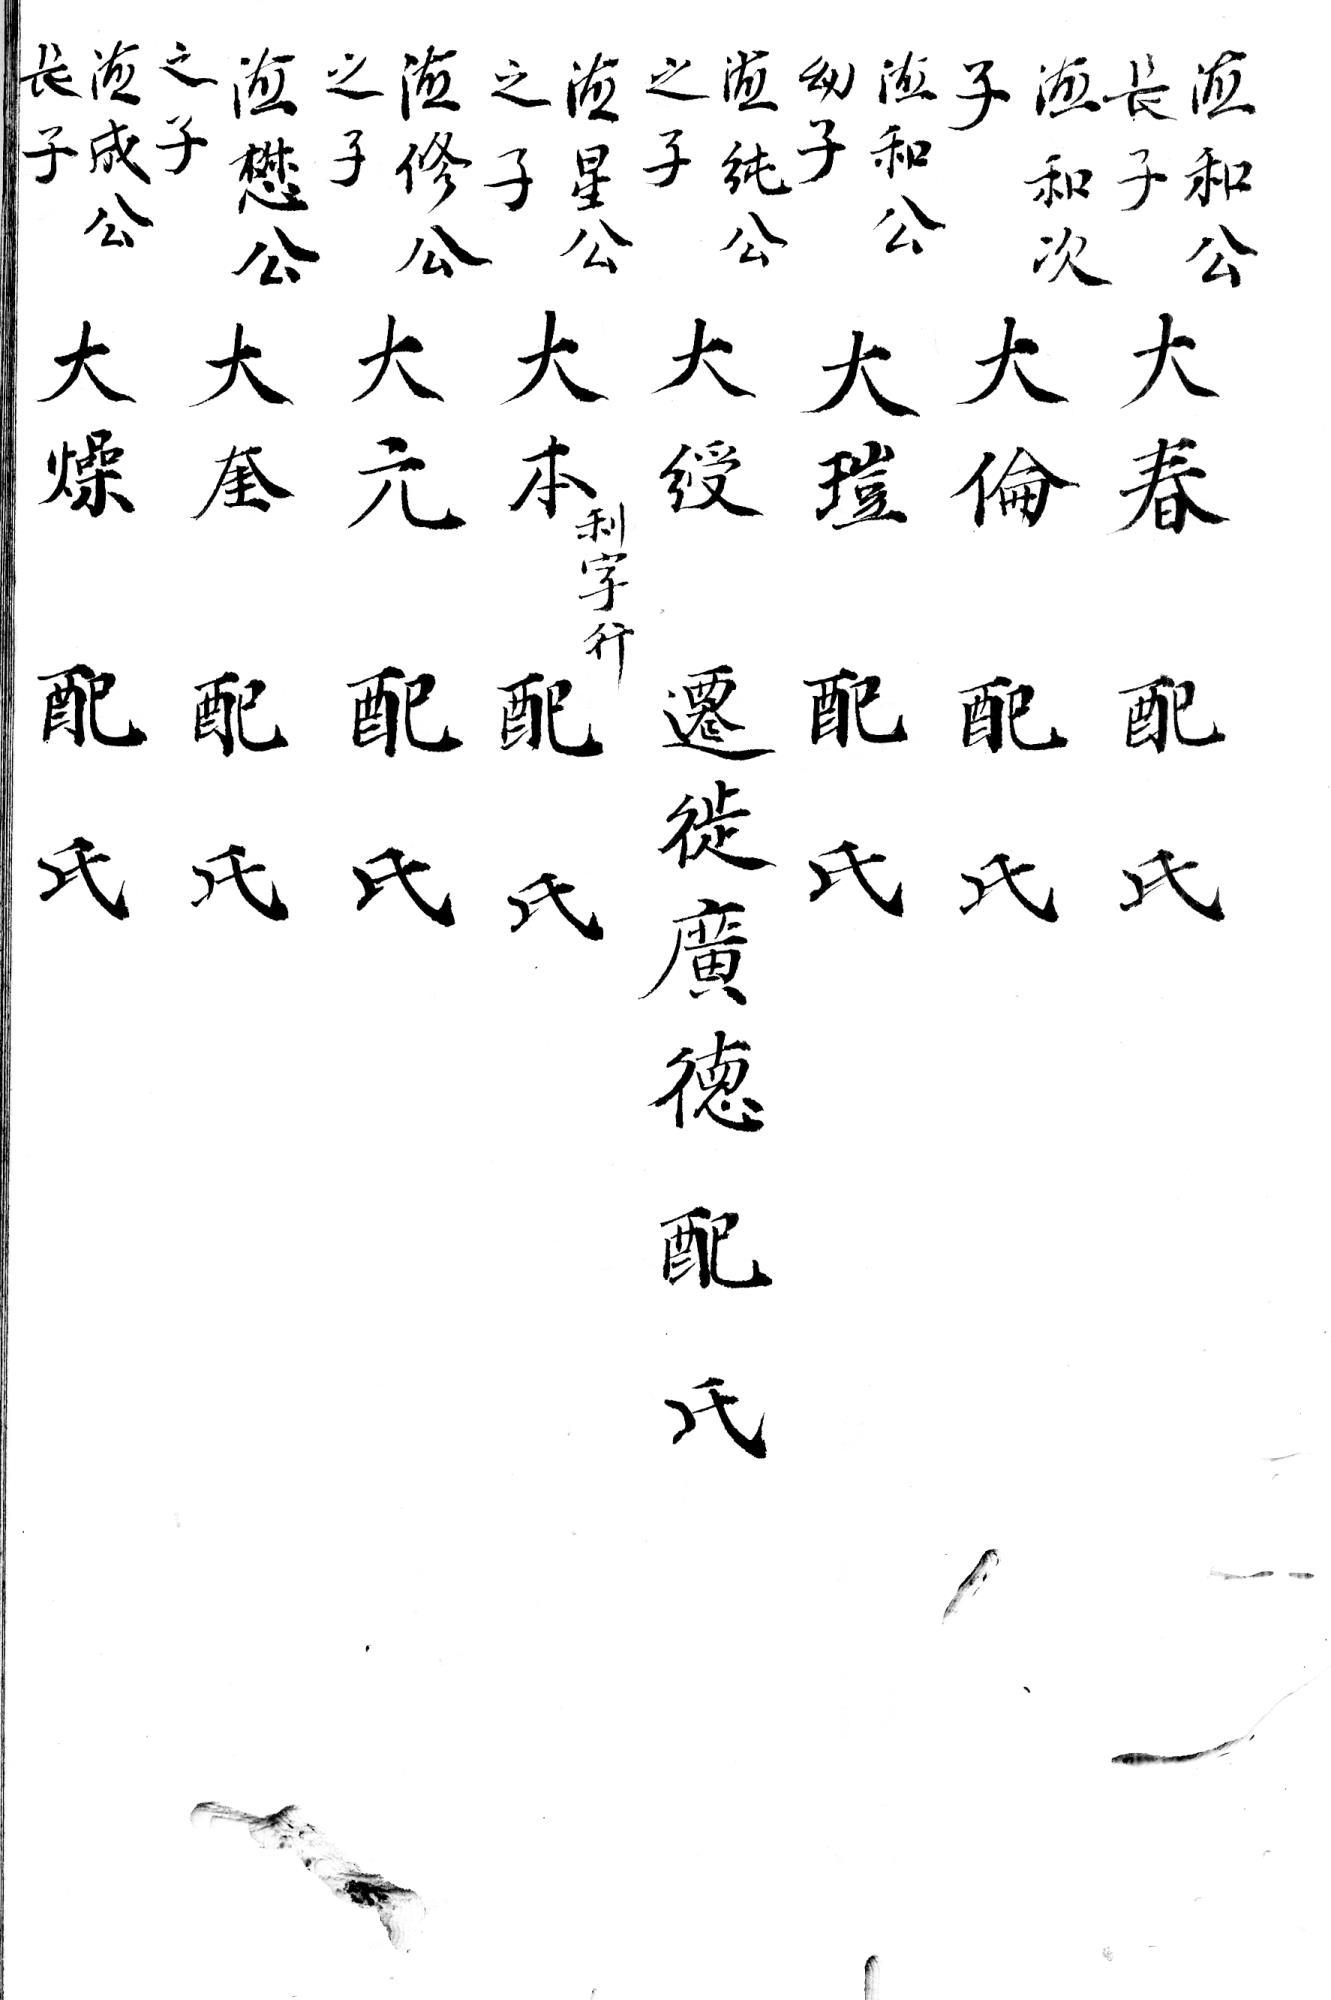 和公長子 大春 配 氏
和次子 大倫 配 氏
和公幼子 大 配 氏
純公之子 大綬 遷徙廣德 配 氏
星公之子 大本 利字行 配 氏
修公之子 大元 配 氏
懋公之子 大奎 配 氏
成公長子 大燥 配 氏